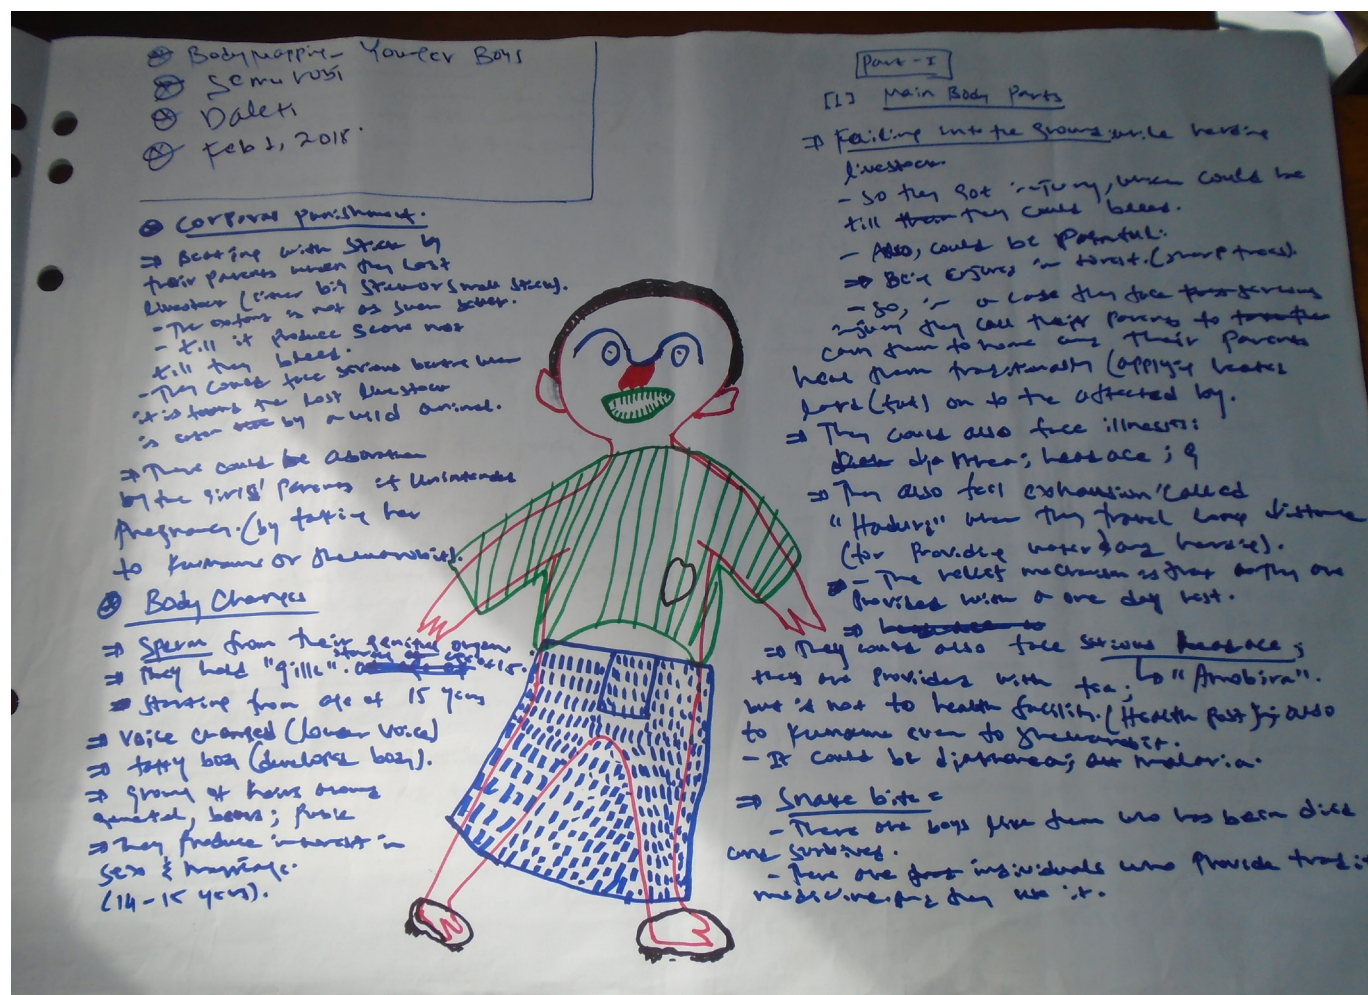 Bodymapping - Younger Boys
Semurobi
Daleti
Feb 1, 2018.
Corporal punishment.
⇒ Beatting with stick by
their parents when they lost
livestock (either big stick or small stick).
- The extent is not as such
- till it produce scare not
till they bleed.
- They could face serious beating when
the lost livestock
is by a wild animal.
⇒ There could be abortion
by the girls' parents if unintended
pregnancy. (by taking her
to Kumame or
Body Changes
⇒ Sperm from their genital organ
⇒ They hold "gille".
starting from age of 15 years
⇒ voice changed (lower voice)
⇒ fatty body (developed body).
⇒ growy of hairs around
genital, beard; pubic
⇒ They produce interest in
sex & marriage.
(14-15 years).
Part - I
[1] Main Body Parts
⇒ Falling into the ground while herding
livestock.
- so they got injury, which could be
till they could bleed.
- Also, could be painful.
⇒ Being enjured in forest. (sharp trees).
- So, in a case they face serious
injury they call their parents to
carry them to home and their parents
heal them traditionally (applying heated
lard (fat) on to the affected by.
⇒ They could also face illness:
diarrhea; headace; &
⇒ They also feel exhausion called
"Hadurs" when they travel long distance
(for providing water and herding).
- The relief mechanism is that they are
provided with a one day rest.
⇒ They could also face serious headace;
"Amobira".
they are provided with tea;
but is not to health facility. (Health post); also
to Kumame even to
- It could be diarrhea; malaria.
⇒ Snake bite
- There are boys like them who has been died
and survived.
- There are individuals who provide
medicine and they use it.